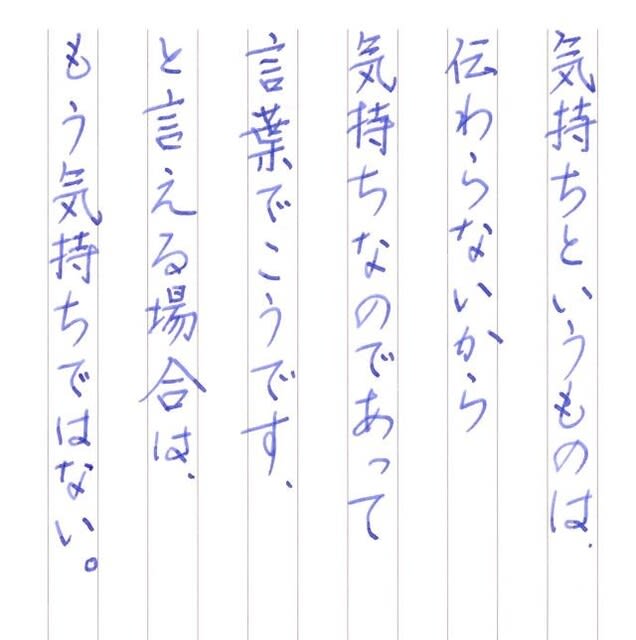 気持ちというものは、
伝わらないから
気持ちなのであって
言葉でこうです、
と言える場合は、
もう気持ちではない。